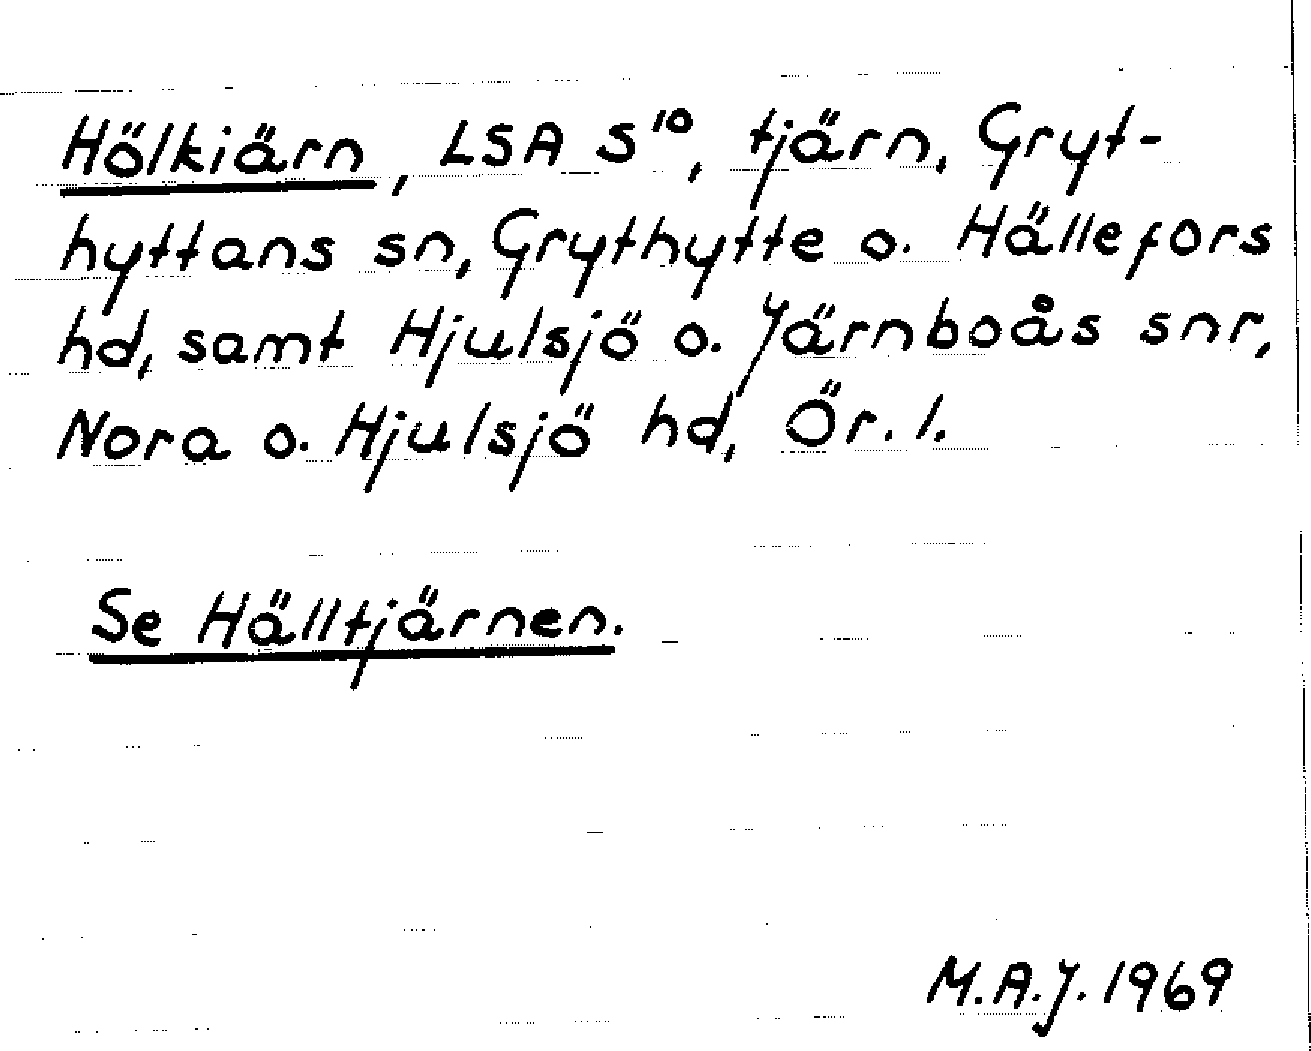 Hölkiärn, LSA S¹⁰, tjärn, Gryt-
hyttans sn, Grythytte o. Hällefors
hd, samt Hjulsjö o. Järnboås snr,
Nora o. Hjulsjö hd, Ör. l.
Se Hälltjärnen.
M.A.J. 1969